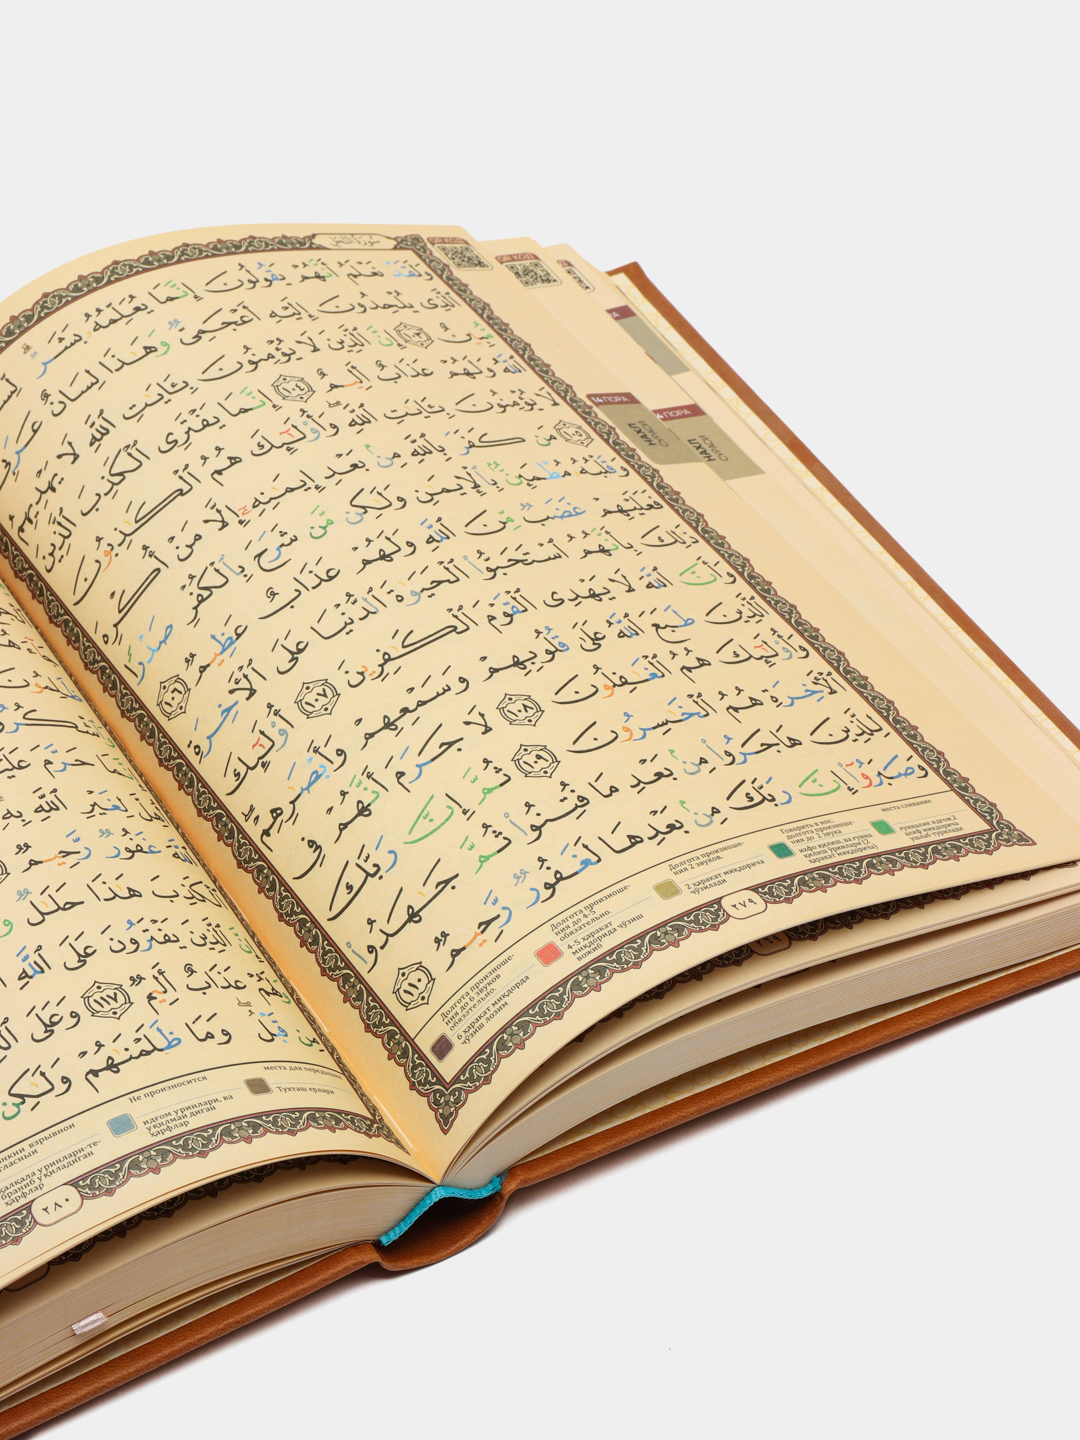 سُورَةُ النَّحْلِ
QR КОД
QR КОД
وَلَقَدْ نَعْلَمُ أَنَّهُمْ يَقُولُونَ إِنَّمَا يُعَلِّمُهُۥ بَشَرٌ
ٱلَّذِى يُلْحِدُونَ إِلَيْهِ أَعْجَمِىٌّ وَهَٰذَا لِسَانٌ عَرَبِىٌّ
مُّبِينٌ ١٠٣ إِنَّ ٱلَّذِينَ لَا يُؤْمِنُونَ بِـَٔايَٰتِ ٱللَّهِ لَا يَهْدِيهِمُ
ٱللَّهُ وَلَهُمْ عَذَابٌ أَلِيمٌ ١٠٤ إِنَّمَا يَفْتَرِى ٱلْكَذِبَ ٱلَّذِينَ
لَا يُؤْمِنُونَ بِـَٔايَٰتِ ٱللَّهِ ۖ وَأُو۟لَٰٓئِكَ هُمُ ٱلْكَٰذِبُونَ
١٠٥ مَن كَفَرَ بِٱللَّهِ مِنۢ بَعْدِ إِيمَٰنِهِۦٓ إِلَّا مَنْ أُكْرِهَ
وَقَلْبُهُۥ مُطْمَئِنٌّۢ بِٱلْإِيمَٰنِ وَلَٰكِن مَّن شَرَحَ بِٱلْكُفْرِ صَدْرًا
فَعَلَيْهِمْ غَضَبٌ مِّنَ ٱللَّهِ وَلَهُمْ عَذَابٌ عَظِيمٌ ١٠٦
ذَٰلِكَ بِأَنَّهُمُ ٱسْتَحَبُّوا۟ ٱلْحَيَوٰةَ ٱلدُّنْيَا عَلَى ٱلْـَٔاخِرَةِ
وَأَنَّ ٱللَّهَ لَا يَهْدِى ٱلْقَوْمَ ٱلْكَٰفِرِينَ ١٠٧ أُو۟لَٰٓئِكَ
ٱلَّذِينَ طَبَعَ ٱللَّهُ عَلَىٰ قُلُوبِهِمْ وَسَمْعِهِمْ وَأَبْصَٰرِهِمْ ۖ
وَأُو۟لَٰٓئِكَ هُمُ ٱلْغَٰفِلُونَ ١٠٨ لَا جَرَمَ أَنَّهُمْ فِى
ٱلْـَٔاخِرَةِ هُمُ ٱلْخَٰسِرُونَ ١٠٩ ثُمَّ إِنَّ رَبَّكَ
لِلَّذِينَ هَاجَرُوا۟ مِنۢ بَعْدِ مَا فُتِنُوا۟ ثُمَّ جَٰهَدُوا۟
وَصَبَرُوٓا۟ إِنَّ رَبَّكَ مِنۢ بَعْدِهَا لَغَفُورٌ رَّحِيمٌ ١١٠
Долгота произноше-
ния до 6 звуков
обязательно.
6 ҳаракат миқдорда
чўзиш лозим
Долгота произноше-
ния до 4-5
обязательно.
4-5 ҳаракат
миқдорида чўзиш
вожиб
Долгота произноше-
ния 2 звуков.
2 ҳаракат миқдорича
чўзилади
Говорить в нос,
долгота произноше-
ния до 2 звука
ихфо қилиш, ва ғунна
қилиш ўринлари (2
ҳаракат миқдорича)
места сливание
ғунналик идғом 2
алиф миқдорича
ушлаб турилади
٢٧٩
14 ПОРА
НАХЛ
СУРАСИ
14 ПОРА
НАХЛ
СУРАСИ
حَرَّمَ
لِغَيْرِ ٱللَّهِ بِهِۦ
غَفُورٌ رَّحِيمٌ
ٱلْكَذِبَ هَٰذَا حَلَٰلٌ
ٱلَّذِينَ يَفْتَرُونَ عَلَى ٱللَّهِ
عَذَابٌ أَلِيمٌ ١١٧ وَعَلَى
قَبْلُ ۖ وَمَا ظَلَمْنَٰهُمْ وَلَٰكِن
Не произносится
идғом ўринлари, ва
уқилмай диган
ҳарфлар
места для передышки
Тухташ ерлари
٢٨٠